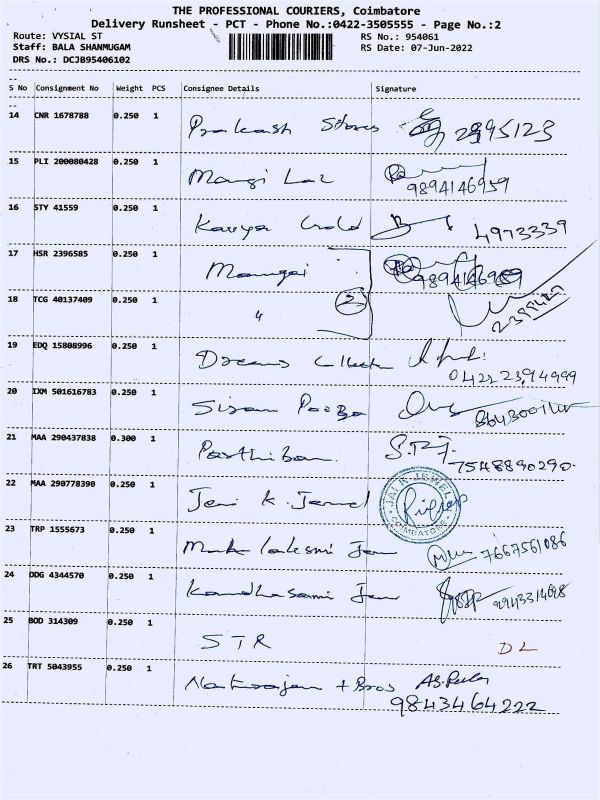 THE PROFESSIONAL COURIERS, Coimbatore
Delivery Runsheet - PCT - Phone No.:0422-3505555 - Page No.:2
Route: VYSIAL ST
RS No.: 954061
Staff: BALA SHANMUGAM
RS Date: 07-Jun-2022
DRS No.: DCJB95406102
S No Consignment No Weight PCS Consignee Details Signature
14 CNR 1678788 0.250 1 Prakash Stores 2395123
15 PLI 200080428 0.250 1 Mangi Lal
9894146959
16 STY 41559 0.250 1 Kavya Gold 4973339
17 HSR 2396585 0.250 1 Mangai 9894146959
18 TCG 40137409 0.250 1 " 2
19 EDQ 15808996 0.250 1 Dreams
0422 2394999
20 IXM 501616783 0.250 1
21 MAA 290437838 0.300 1 Parthiban
7548890290
22 MAA 290778390 0.250 1 Jai K. Jewel JAI K JEWEL COIMBATORE
23 TRP 1555673 0.250 1 7667561086
24 DDG 4344570 0.250 1 Kandhasami
25 BOD 314309 0.250 1 STR DL
26 TRT 5043955 0.250 1 Natarajan + Bros
9843464222